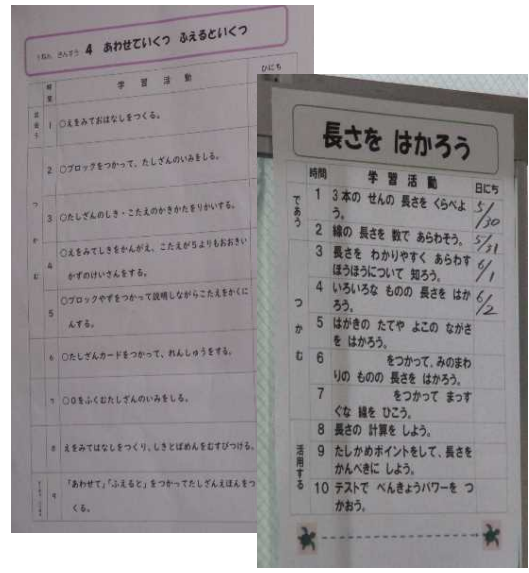 1ねん さんすう 4 あわせていくつ ふえるといくつ
時間 学習活動 ひにち
1 ○えをみておはなしをつくる。
2 ○ブロックをつかって、たしざんのいみをしる。
つかむ
3 ○たしざんのしき・こたえのかきかたをりかいする。
4 ○えをみてしきをかんがえ、こたえが5よりもおおきい
かずのけいさんをする。
5 ○ブロックやずをつかって説明しながらこたえをかくに
んする。
6 ○たしざんカードをつかって、れんしゅうをする。
7 ○0をふくむたしざんのいみをしる。
8 えをみてはなしをつくり、しきとばめんをむすびつける。
9 「あわせて」「ふえると」をつかってたしざんえほんをつ
くる。
長さを はかろう
時間 学習活動 日にち
であう
1 3本の せんの 長さを くらべよ
う。 5/30
2 線の 長さを 数で あらわそう。 5/31
つかむ
3 長さを わかりやすく あらわす
ほうほうについて 知ろう。 6/1
4 いろいろな ものの 長さを はか
ろう。 6/2
5 はがきの たてや よこの ながさ
を はかろう。
6 をつかって、みのまわ
りの ものの 長さを はかろう。
7 をつかって まっす
ぐな 線を ひこう。
活用する
8 長さの 計算を しよう。
9 たしかめポイントをして、長さを
かんぺきに しよう。
10 テストで べんきょうパワーを つ
かおう。